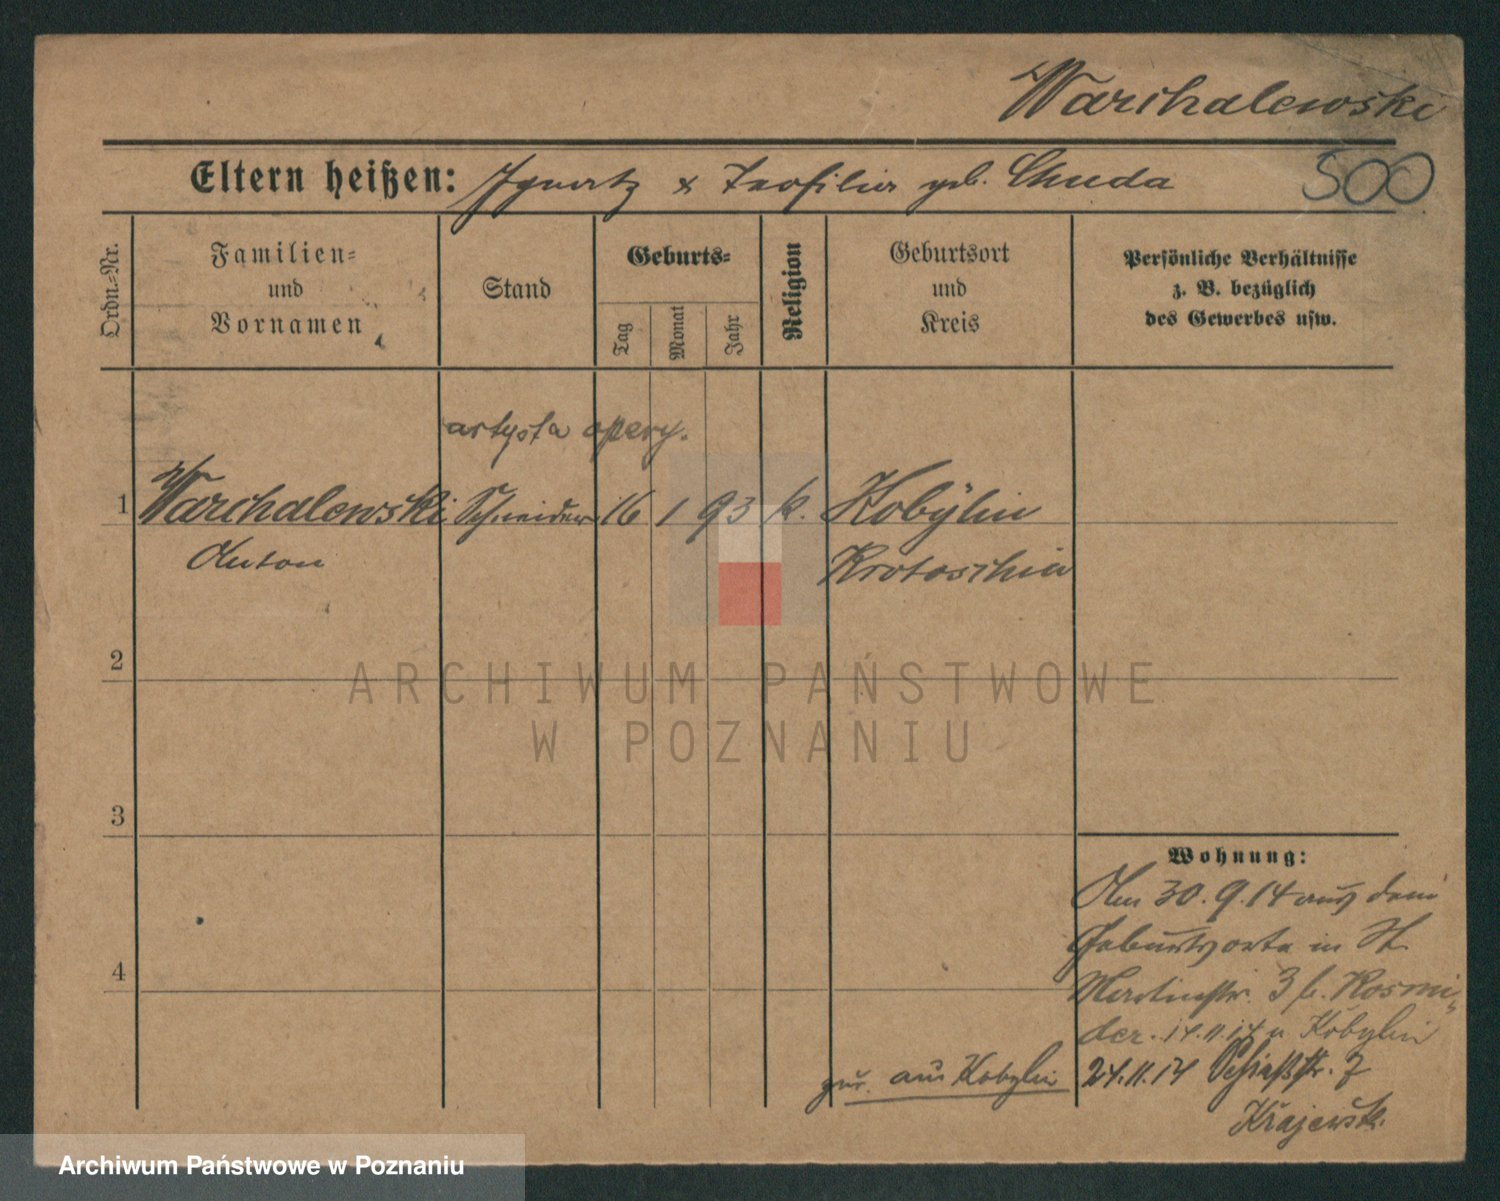 Warchalewski
Eltern heißen: Ignatz & Teofilia geb. Chuda
500
Ordn.-Nr.
Familien-
und
Vornamen
Stand
Geburts-
Tag
Monat
Jahr
Religion
Geburtsort
und
Kreis
Persönliche Verhältnisse
z. B. bezüglich
des Gewerbes usw.
artysta opery.
1 Warchalewski Schneider 16 1 93 k. Kobylin
Anton Krotoschin
2
ARCHIWUM PAŃSTWOWE
W POZNANIU
3
Wohnung:
Am 30.9.14 aus dem
Geburtsorte in St.
4
Martinstr. 3 b. Kosmi-
der. 14.11.14 n Kobylin
zur. aus Kobylin 24.11.14 Schießstr. 7
Krajewsk.
Archiwum Państwowe w Poznaniu